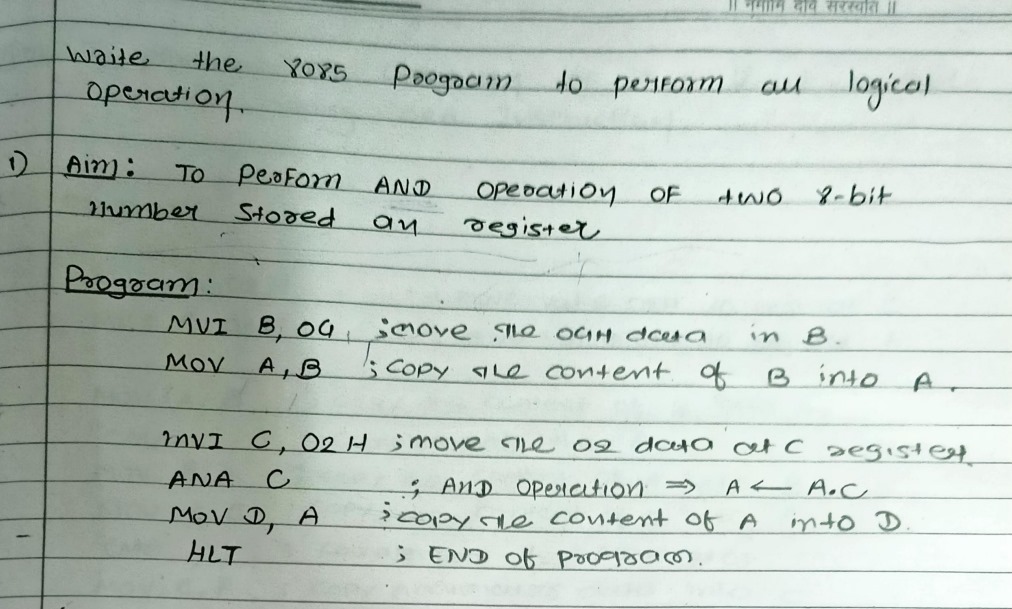 || नमामि देवि सरस्वति ||
Write the 8085 Program to perform all logical
Operation.
1) Aim: To Perform AND Operation OF two 8-bit
number Stored an register
Program:
MVI B, 04 ; move the 04H data in B.
MOV A, B ; copy the content of B into A.
MVI C, 02H ; move the 02 data at C register.
ANA C ; AND Operation ⇒ A ← A.C
MOV D, A ; copy the content of A into D.
HLT ; END of program.